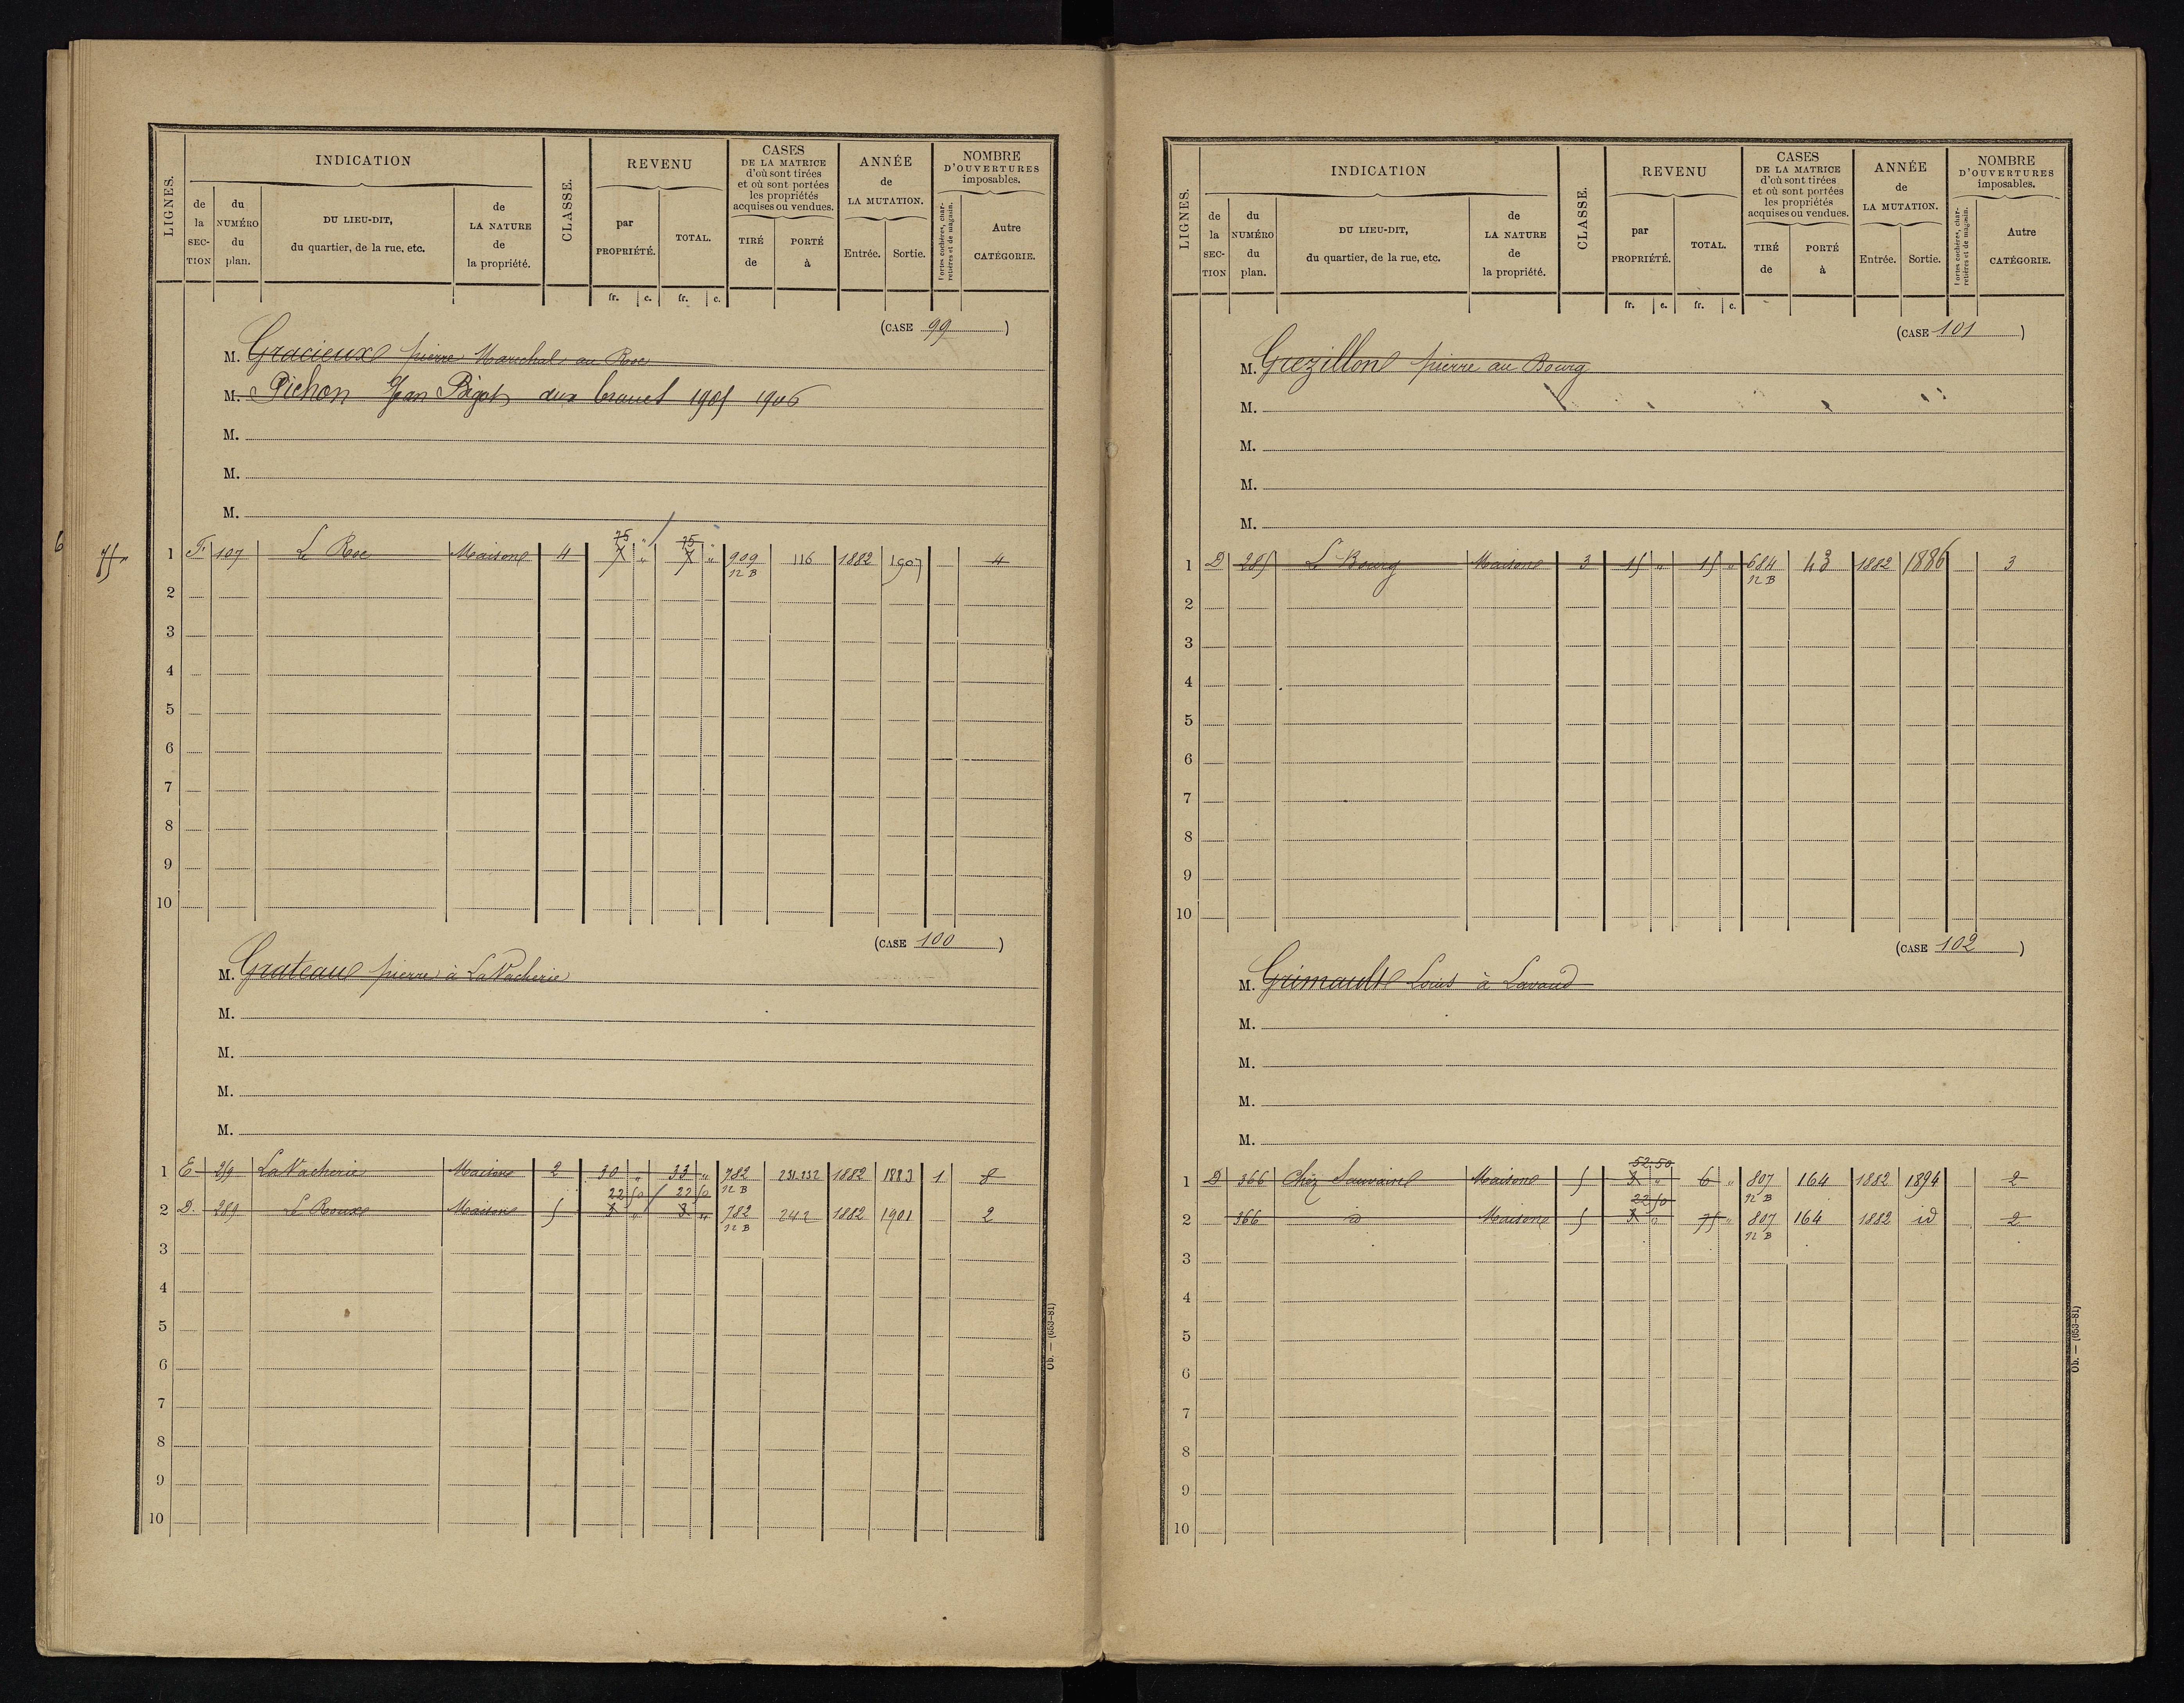 LIGNES.
INDICATION
de la SECTION
du NUMÉRO du plan.
DU LIEU-DIT, du quartier, de la rue, etc.
de LA NATURE de la propriété.
CLASSE.
REVENU
par PROPRIÉTÉ.
TOTAL.
fr. c. fr. c.
CASES DE LA MATRICE d'où sont tirées et où sont portées les propriétés acquises ou vendues.
TIRÉ de
PORTÉ à
ANNÉE de LA MUTATION.
Entrée. Sortie.
NOMBRE D'OUVERTURES imposables.
Portes cochères, charretières et de magasin.
Autre CATÉGORIE.
(CASE 99)
M. Gracieux pierre Marechal au Roc
M. Pichon Jean 1906
M.
M.
M.
6
75 " 75
1 F. 107 Le Roc Maison 4 7 " 7 " 909 116 1882 1907 4
n B
2
3
4
5
6
7
8
9
10
(CASE 100)
M. Grateau pierre à La Vacherie
M.
M.
M.
M.
1 E 259 La Vacherie Maison 2 30 " 33 " 782 231.232 1882 1883 1 8
22 50 22 50 n B
2 D. 289 Le Roux Maison 5 3 " 3 " 782 242 1882 1901 2
n B
3
4
5
6
7
8
9
10
Ob. — (653-81)
LIGNES.
INDICATION
de la SECTION
du NUMÉRO du plan.
DU LIEU-DIT, du quartier, de la rue, etc.
de LA NATURE de la propriété.
CLASSE.
REVENU
par PROPRIÉTÉ.
TOTAL.
fr. c. fr. c.
CASES DE LA MATRICE d'où sont tirées et où sont portées les propriétés acquises ou vendues.
TIRÉ de
PORTÉ à
ANNÉE de LA MUTATION.
Entrée. Sortie.
NOMBRE D'OUVERTURES imposables.
Portes cochères, charretières et de magasin.
Autre CATÉGORIE.
(CASE 101)
M. Grezillon pierre au Bourg
M.
M.
M.
M.
1 D 285 Le Bourg Maison 3 15 " 15 " 684 43 1882 1886 3
n B
2
3
4
5
6
7
8
9
10
(CASE 102)
M. Grimault Louis à Lavaud
M.
M.
M.
M.
52.50
1 D 366 Chez Sauvaire Maison 5 3 " 6 " 807 164 1882 1894 2
22 50 n B
2 366 id Maison 5 3 " 75 " 807 164 1882 id 2
n B
3
4
5
6
7
8
9
10
Ob. — (653-81)